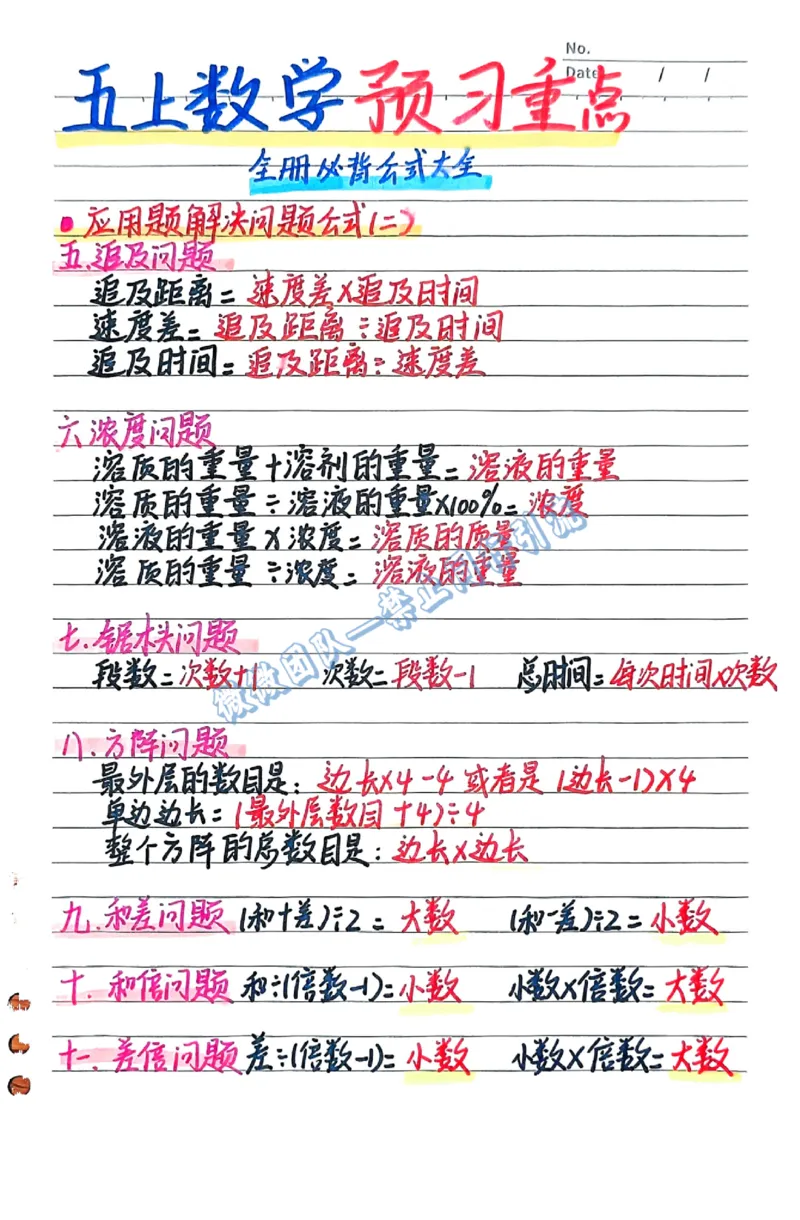 No.
Date / /
五上数学预习重点
全册必背公式大全
• 应用题解决问题公式(二)
五.追及问题
追及距离=速度差×追及时间
速度差=追及距离÷追及时间
追及时间=追及距离÷速度差
六浓度问题
溶质的重量+溶剂的重量=溶液的重量
溶质的重量÷溶液的重量×100%=浓度
溶液的重量×浓度=溶质的质量
溶质的重量÷浓度=溶液的重量
七.锯木头问题
段数=次数+1 次数=段数-1 总时间=每次时间×次数
八.方阵问题
最外层的数目是:边长×4-4或者是(边长-1)×4
单边边长=(最外层数目+4)÷4
整个方阵的总数目是:边长×边长
九.和差问题(和+差)÷2=大数 (和-差)÷2=小数
十.和倍问题 和÷(倍数-1)=小数 小数×倍数=大数
十一.差倍问题 差÷(倍数-1)=小数 小数×倍数=大数
微微团队一禁止同行引流